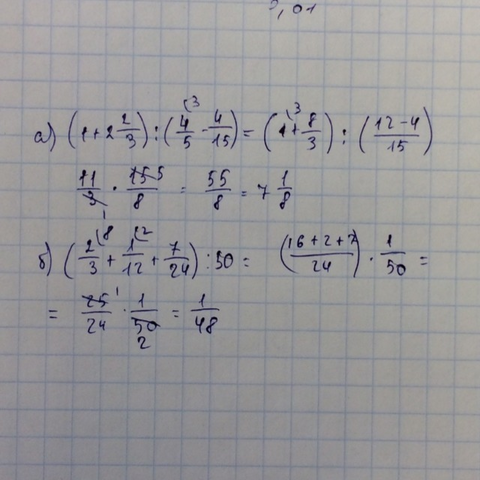 а) (1 + 2 2/3) : (4/5 - 4/15) = (1 + 8/3) : (12 - 4/15)
11/3 · 15/8 = 55/8 = 7 1/8
б) (2/3 + 1/12 + 7/24) : 50 = (16 + 2 + 7/24) · 1/50 =
= 25/24 · 1/50 = 1/48